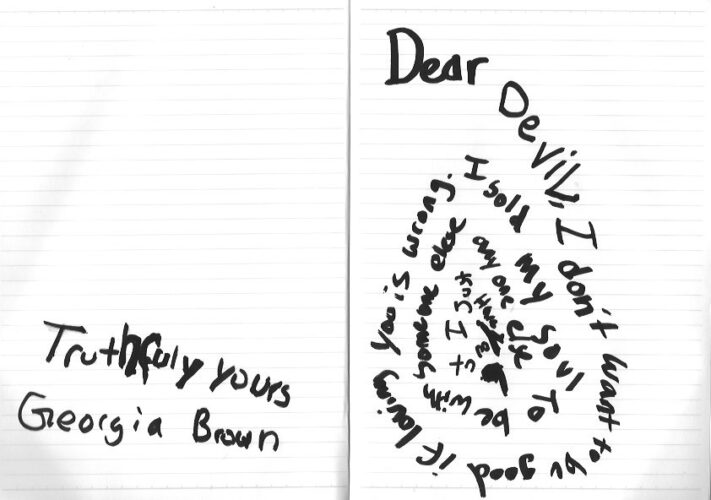 Dear Devil, I don't want to be good if loving you is wrong. I sold my soul To be with someone else any one else I Just
Truthfuly yours
Georgia Brown